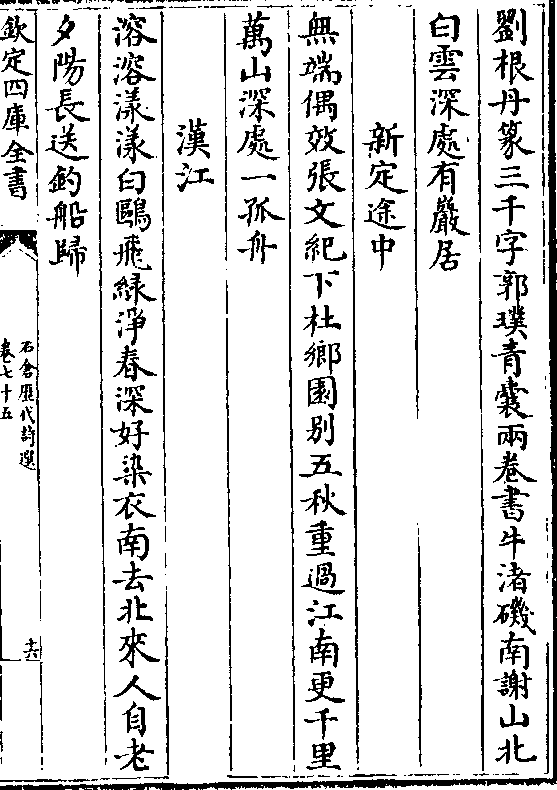 劉根丹篆三千字郭璞青囊兩卷書牛渚磯南謝山北
白雲深處有巖居
新定途中
無端偶效張文紀下杜鄉園别五秋重過江南更千里
萬山深處一孤舟
漢江
溶溶漾漾白鷗飛緑淨春深好染衣南去北來人自老
夕陽長送釣船歸
欽定四庫全書
石倉歷代詩選
卷七十五
十六